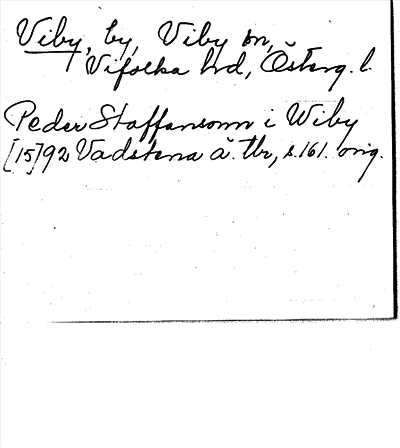 Viby, by, Viby sn,
Vifolka hrd, Österg. l.
Peder Staffansonn i Wiby
[15]92 Vadstena ä. tbr, s. 161. orig.